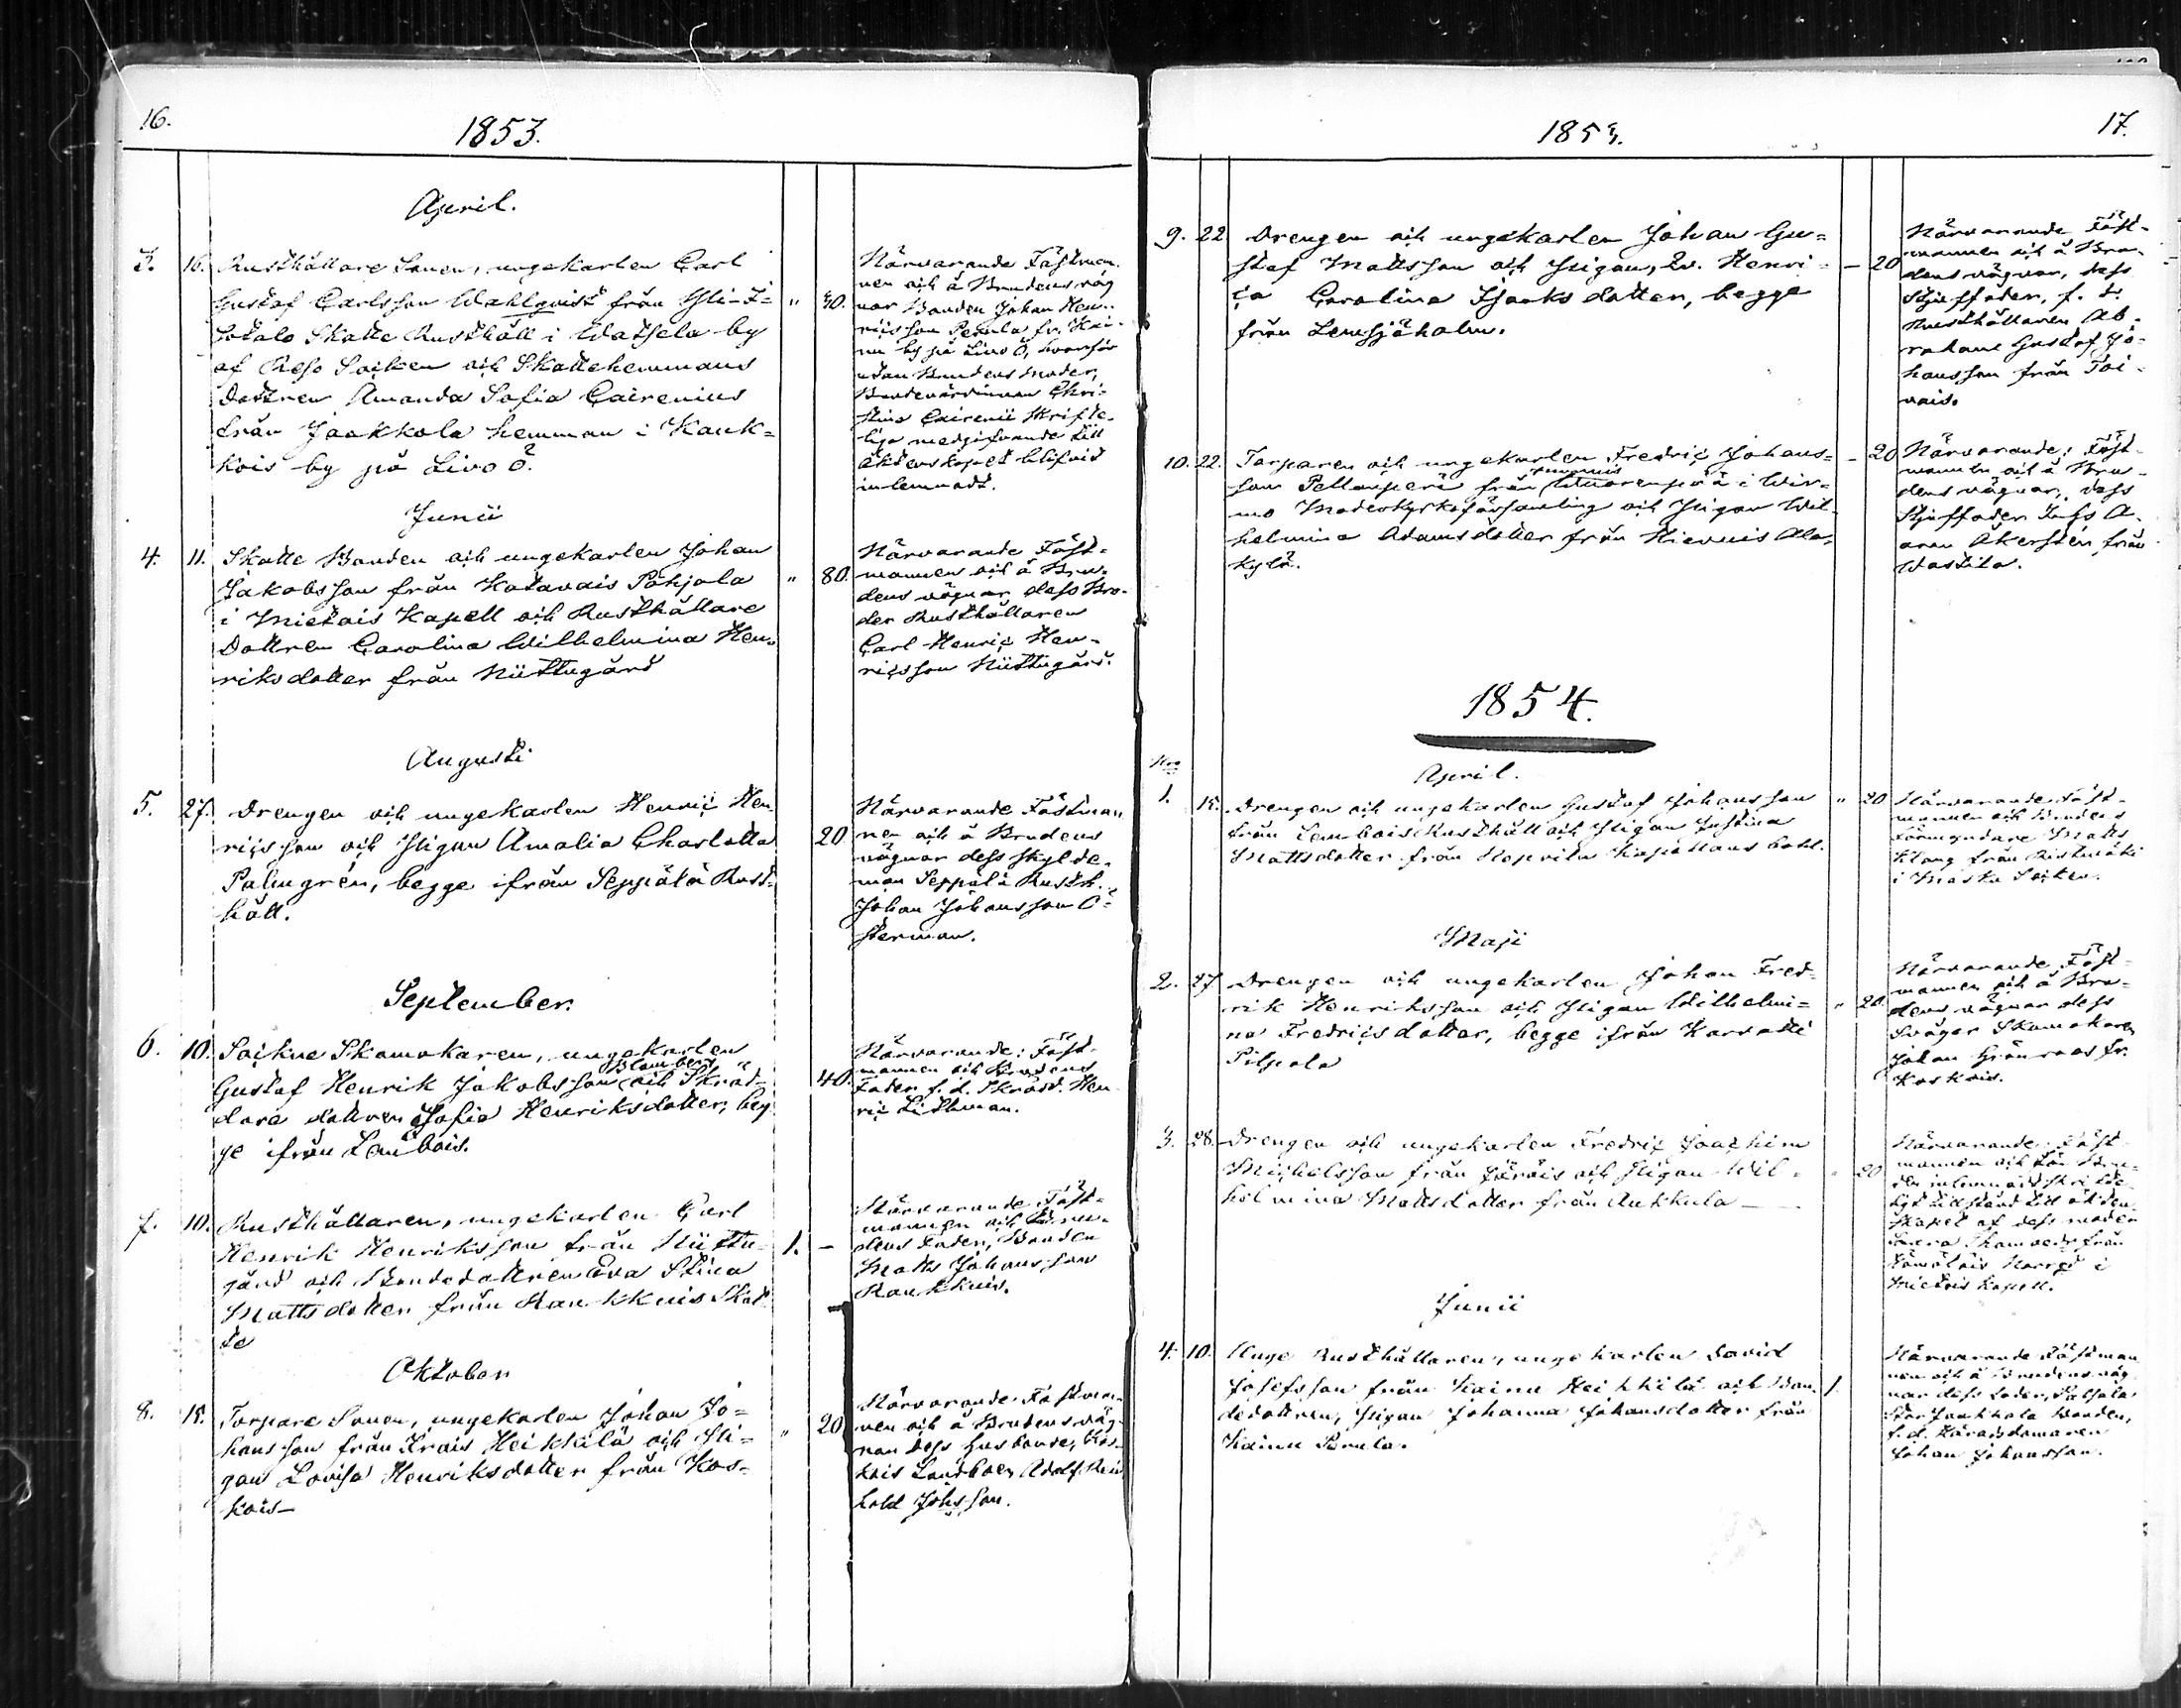 16.
1853.
April.
3. 16. Rusthållare Sonen, ungekarlen Carl
Gustaf Carlsson Wahlqvist från Yli-I-
sotalo Skatte Rusthåll i Watsela by
af Reso Socken och Skattehemmans
dottren Amanda Sofia Cairenius
från Jaakkola hemman i Kauk=
kois by på Livo Ö.
" 30.
Närvarande Fästman-
nen och å Brudens väg
nar Bonden Johan Hen-
ricsson Perula fr. Kai-
nu by på Livo Ö, hvarför
utan Brudens moder,
Bondevärdinnan Chri-
stina Cairenii skrifte-
liga medgifvande till
äktenskapet blifvit
inlemnadt.
Junii
4. 11. Skatte Bonden och ungekarlen Johan
Jakobsson från Katavais Pohjala
i Mietois Kapell och Rusthållare
Dottren Carolina Wilhelmina Hen=
riksdotter från Niittugård
" 80.
Närvarande Fäst-
mannen och å Bru-
dens vägnar dess Bro-
der Rusthållaren
Carl Henric Hen-
ricsson Niittugård.
Augusti
5. 27. Drengen och ungekarlen Henric Hen
ricsson och Pigan Amalia Charlotta
Palmgrén, begge ifrån Seppälä Rust-
håll.
20
Närvarande Fästman
nen och å Brudens
vägnar dess skylde-
man Seppälä Rusth.
Johan Johansson Ö-
sterman.
September.
6. 10. Sockne Skomakaren, ungekarlen
Gustaf Henrik Jakobsson Blomberg och Skräd-
dare dottren Sofia Henriksdotter, beg
ge ifrån Lembois.
40.
Närvarande: Fäst-
mannen och Brudens
Fader f. d. Skrädd. Hen
ric Lithman.
7. 10. Rusthållaren, ungekarlen Carl
Henrik Henriksson från Niittu-
gård och Bondedottren Eva Stina
Mattsdotter från Raukkuis Skat
te
1. –
Närvarande Fäst-
mannen och Bru-
dens Fader, Bonden
Matts Johansson
Raukkuis.
Oktober
8. 15. Torpare Sonen, ungekarlen Johan Jo=
hansson från Krais Heikkilä och Pi=
gan Lovisa Henriksdotter från Kos-
kois—
" 20
Närvarande Fästman-
nen och å Brudens väg-
nar dess Husbonde, Kos-
kois Landboen Adolf Rein
hold Johsson.
17.
1853.
9. 22 Drengen och ungekarlen Johan Gu=
staf Mattsson och Pigan, Henri-
ca Carolina Isaaksdotter, begge
från Lemsjöholm.
– 20
Närvarande Fäst-
mannen och å Bru-
dens vägnar, dess
Styffader, f. d.
Rusthållaren Ab-
raham Gustaf Jo-
hansson från Toi-
vais.
10. 22. Torparen och ungekarlen Fredric Johans=
son Pellonperä från Wuorenpää i Wir-
mo Moderkyrkoförsamling och Pigan Wil-
helmina Adamsdotter från Hievais Ala-
kylä.
– 20
Närvarande: Fäst-
mannen och å Bru-
dens vägnar, dess
Styffader Inhs A-
aron Åkersten från
Wastila.
1854.
Nro
April.
1. 15. Drengen och ungekarlen Gustaf Johansson
från Lembois Rusthåll och Pigan Justina
Mattsdotter från Kapellans bohl.
" 20
Närvarande: Fäst-
mannen och Brudens
Förmyndare Matts
Klang från Ristimäki
i Masku Socken.
Maji
2. 27 Drengen och ungekarlen Johan Fred-
rik Henriksson och Pigan Wilhelmi=
na Fredricsdotter, begge ifrån Karvatti
Pilpola
" 20.
Närvarande Fäst-
mannen och å Bru-
dens vägnar dess
Svåger Skomakaren
Johan Grönroos fr.
Koskois.
3. 28. Drengen och ungekarlen Fredric Joachim
Michelsson från Järäis och Pigan Wil-
helmina Mattsdotter från Aukkula —
" 20
Närvarande: Fäst-
mannen och för Bru-
den inlemnadt skrift-
ligt tillstånd till äkten-
skapet af dess moder
från
i
Mietois Kapell.
Junii
4. 10. Unge Rusthållaren, ungekarlen David
Josefsson från Kainu Heikkilä och Bon-
dedottren, Pigan Johanna Johansdotter från
Kainu Perula.
1.
Närvarande Fästman
nen och å Brudens väg
nar dess Fader,
Stor Jaakkola Bonden,
f. d. Häradsdomaren
Johan Johansson.